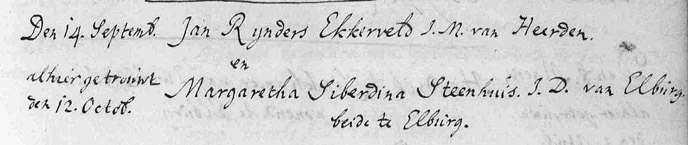 Den 14. Septemb. Jan Rynders Ekkervelt J. M. van Heerden.
en
alhier getrouwt Margaretha Siberdina Steenhuis. J. D. van Elburg.
den 12. Octob.
beide te Elburg.